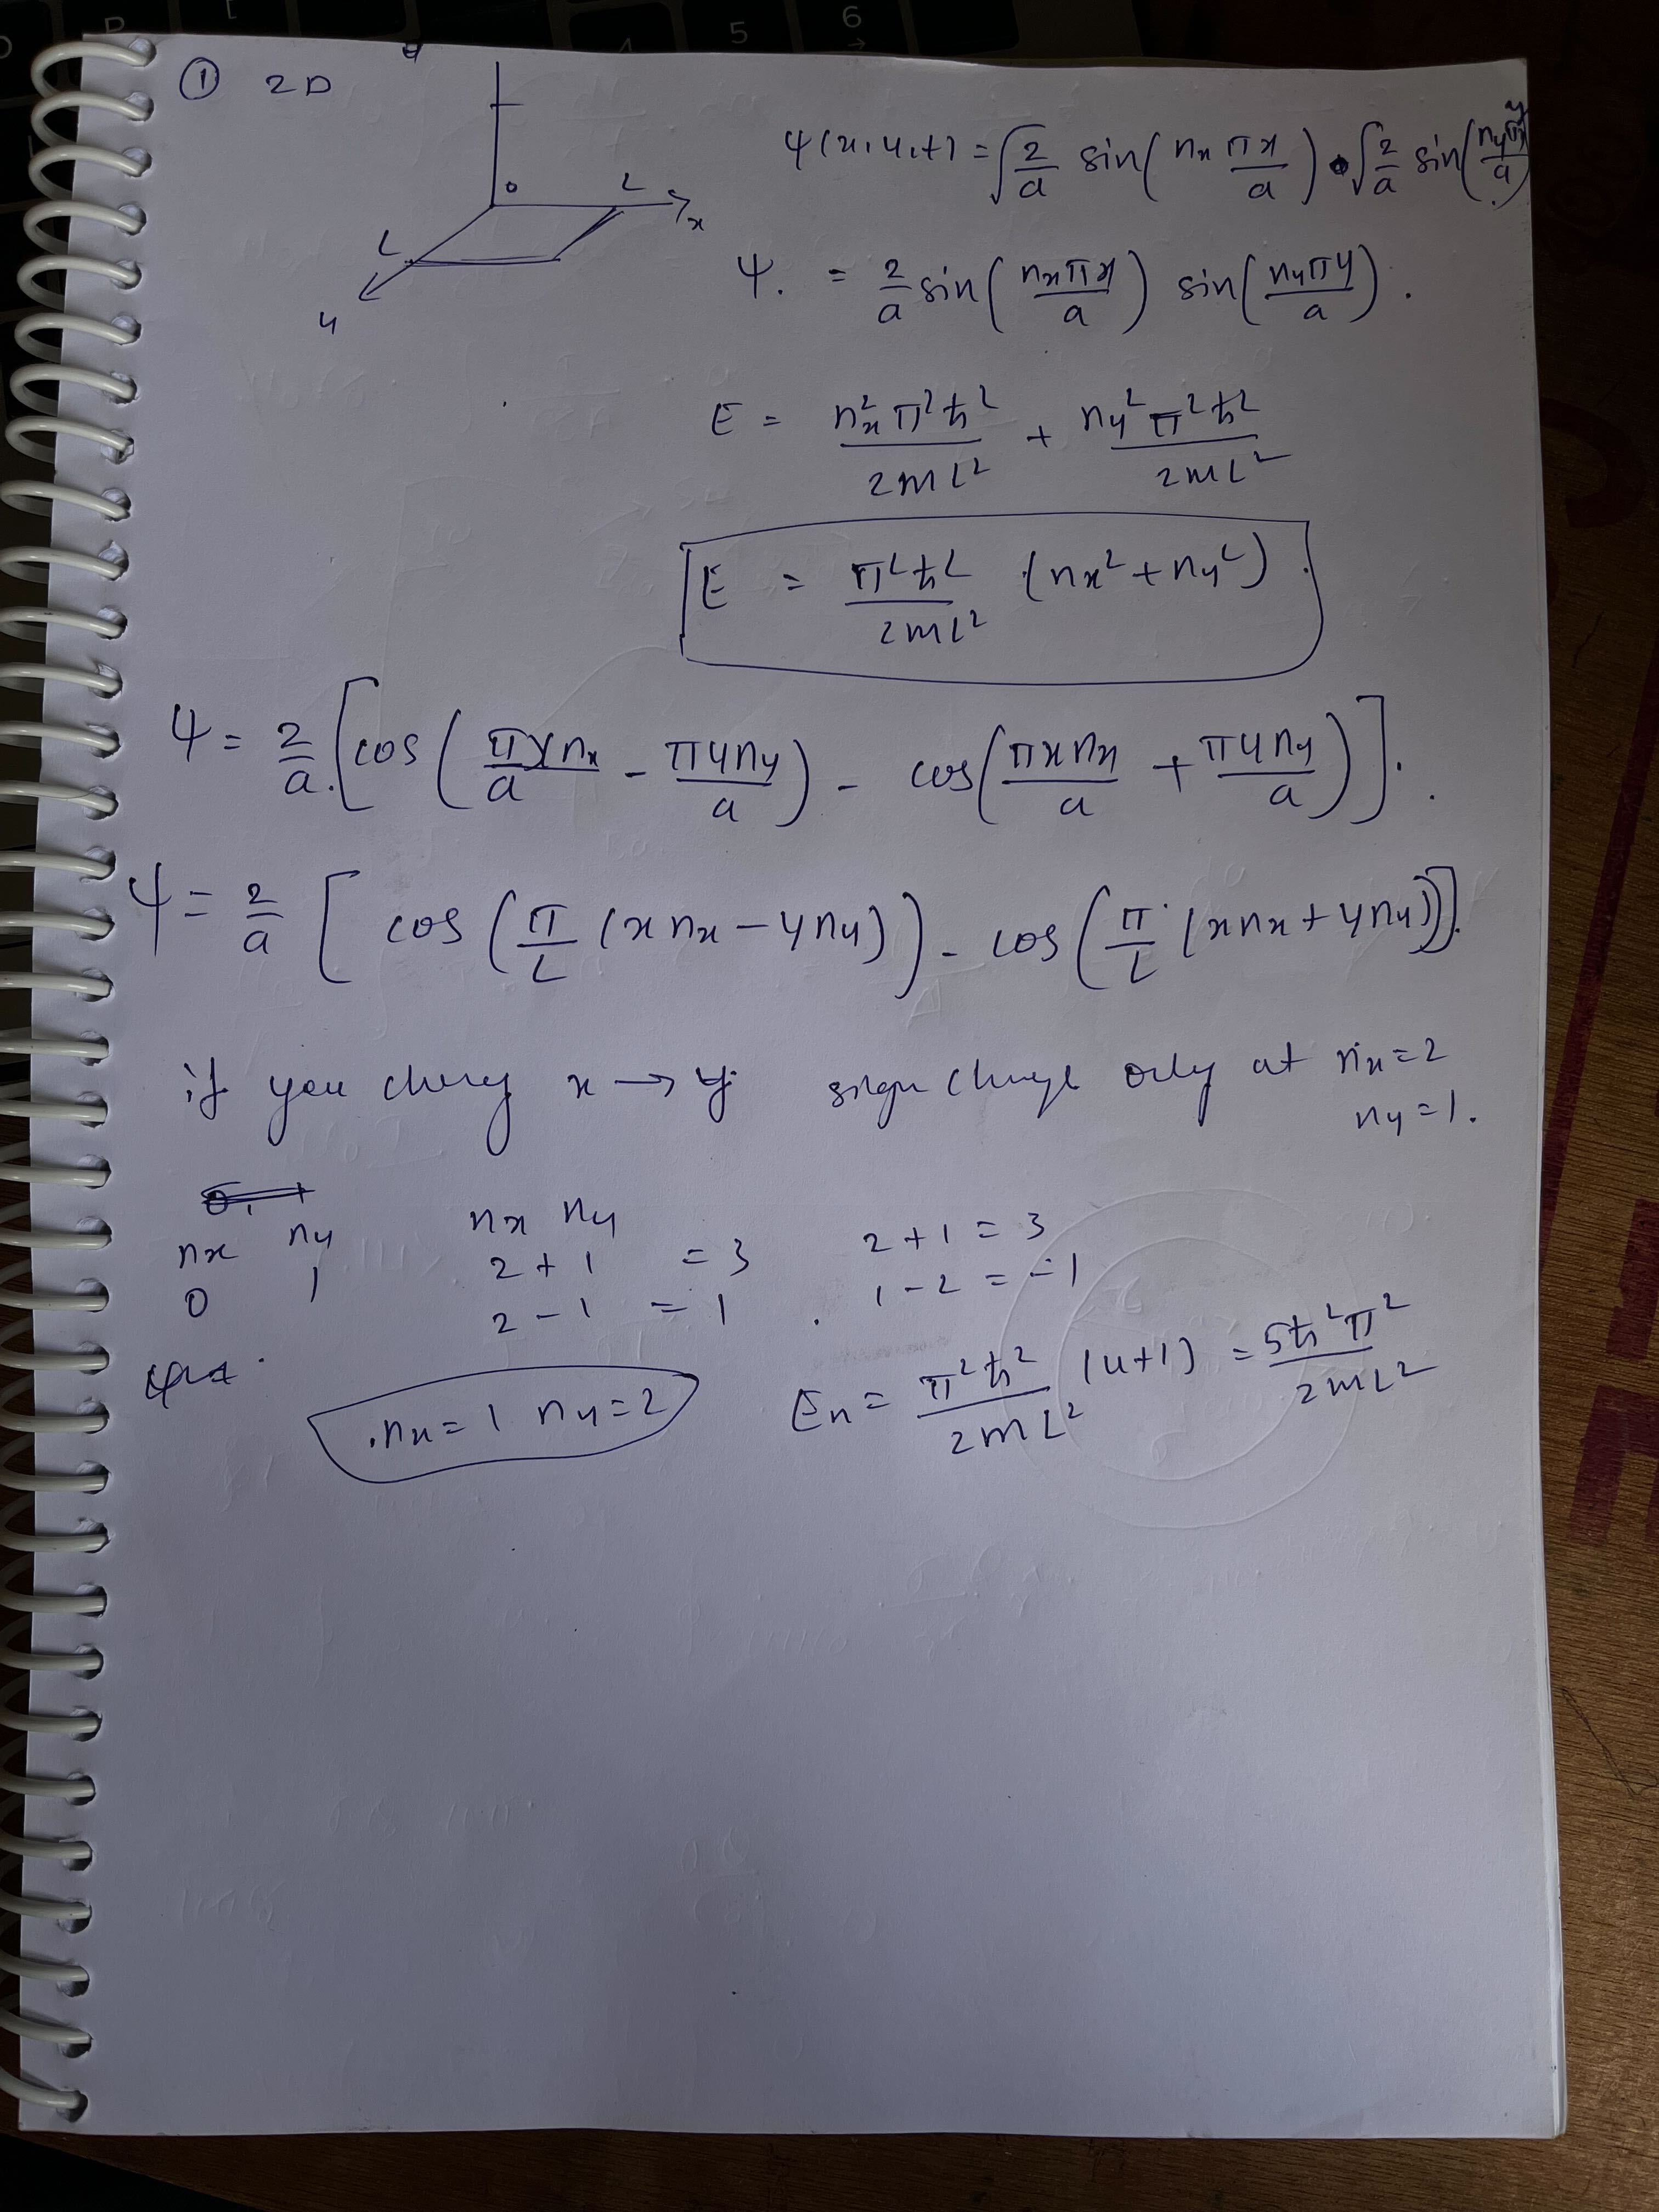 5 6
① 2D
0 L x
L
y
ψ(x,y,t) = √(2/a) sin(nx πx/a) • √(2/a) sin(nyπy/a)
ψ. = 2/a sin(nxπx/a) sin(nyπy/a).
E = nx²π²ħ²/2mL² + ny²π²ħ²/2mL²
E = π²ħ²/2mL² (nx²+ny²).
ψ = 2/a.[cos(πxnx/a - πyny/a) - cos(πxnx/a + πyny/a)].
ψ = 2/a [cos(π/L (xnx - yny)) - cos(π/L (xnx + yny))].
if you chang x → y sign change only at nx=2
ny=1.
nx ny nx ny
0 1 2+1 = 3 2+1 = 3
2-1 = 1 . 1-2 = -1
.nx=1 ny=2 En = π²ħ²/2mL² (4+1) = 5ħ²π²/2mL²